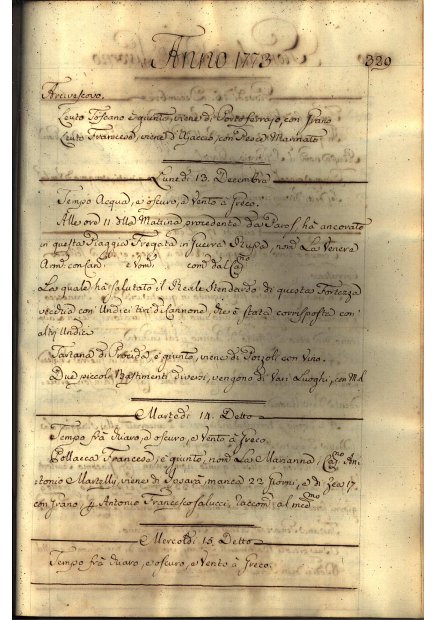 Anno 1773
320
Arcivescovo.
Leuto Toscano è giunto, viene di Porto ferrajo, con Grano
Leuto Francese, viene d'Ajaccio, con Pesce Marinato
Lunedi 13. Decembre
Tempo Acqua, e oscuro, e Vento à Greco.
Alle ore 11 della Mattina procedente da Paros, hà ancorato
in questa Piaggia Fregata in Guerra Russa, nom.ta La Venere
Arm.ta con Can. e Vom. com.ta dal Ca.no
La quale hà salutato il Reale Stendardo di questa Fortezza
vecchia con Undici tiri di Cannone, che è stata corrisposta con
altri Undici
Tartana di Procida, è giunto, viene di Pozzoli con Vino.
Due piccoli Bastimenti diversi, vengono di Vari Luoghi, con M.d
Martedi 14. Detto
Tempo frà chiaro, e oscuro, e Vento à Greco
Pollacca Francese, è giunto, nom.ta La Marianna, Ca.no An-
tonio Martelly, viene di Scioarà, manca 22 Giorni, e di Zea 17.
con Grano, p. Antonio Francesco Salucci, raccom. al med.mo
Mercoldi 15. Detto
Tempo frà chiaro, e oscuro, e Vento à Greco.